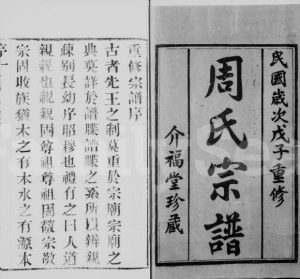 民國歲次戊子重修
周氏宗譜
介福堂珍藏
重修宗譜序
古者先王之制莫重於宗廟宗廟之
典莫詳於譜牒譜牒之系所以辨親
疎别長幼序昭穆也禮有之曰人道
親親也親親固尊祖尊祖固敬宗敬
宗固收族猶木之有本水之有源本
序一